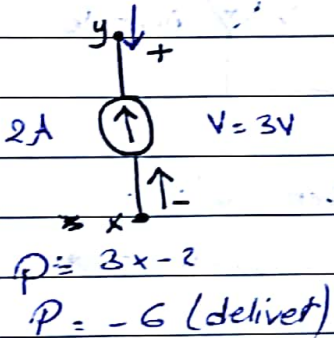 y +
2A V = 3V
x -
P = 3x-2
P = -6 (deliver)